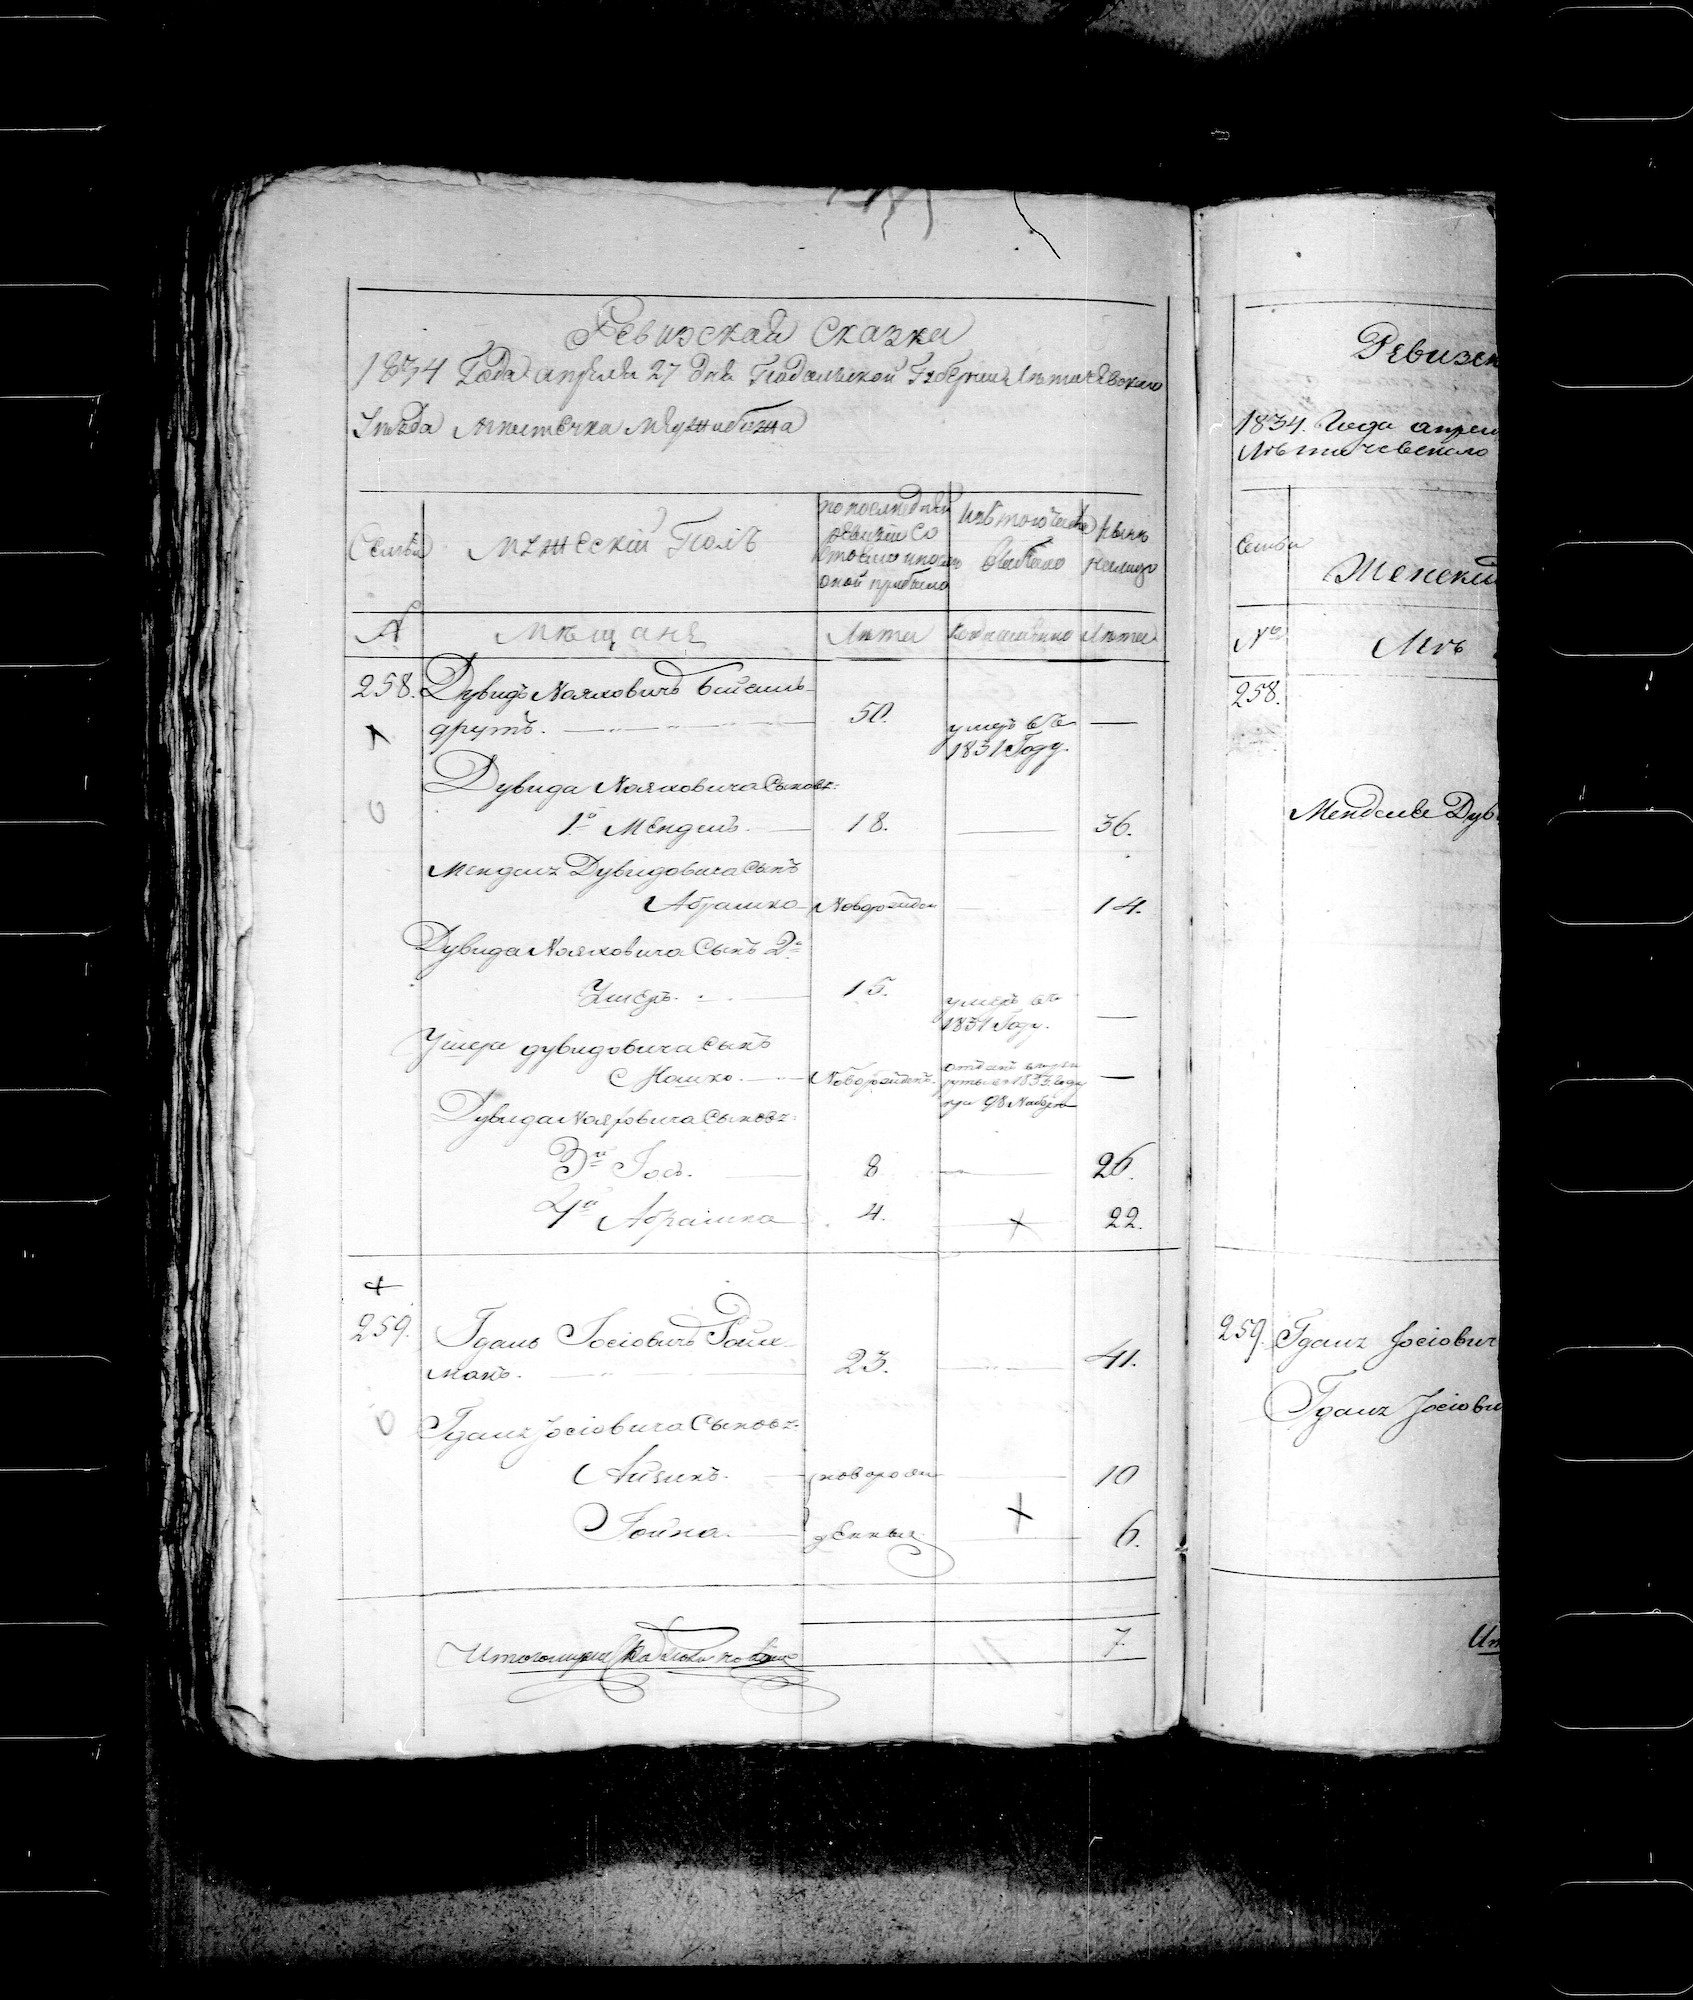 Ревизская Сказка
1834 Года апреля 27 дня Подольской Губернии Летичевского
Уезда Местечка Меджибожа
Семьи
Мужескій Полъ
по последней
ревизіи со
стояло и после
оной прибыло
Изъ того числа
выбыло
Ныне
налицо
№
Мѣщане
Лѣта
Когда именно
Лѣта
258. Дувидъ Нояховичъ
друтъ. 50. умеръ въ —
1831 Году.
Дувида Нояховича Сыновья:
1й Мендель. 18. — 36.
Менделя Дувидовича Сынъ
Абрашко Новорожден — 14.
Дувида Нояховича Сынъ 2й
Ушеръ. 15. умеръ въ —
1831 Году.
Ушера Дувидовича Сынъ
Мошко. Новорожденъ. отданъ въ рек
руты въ 1833 Году —
при 98 Наборе
Дувида Нояховича Сыновья:
3й Іось. 8 — 26.
4й Абрашка 4. — 22.
259. Іосіовичъ Ройх-
манъ. 23. — 41.
Іосіовича Сыновья:
Айзикъ. новорож — 10
Гойна. денные — 6.
Итого мужеска пола налицо 7
Ревизск
1834. Года апрел
Летичевского
Семьи
Женскій
№
Изъ
258.
Менделя Дув
259. Іосіович
Іосіови
Ит